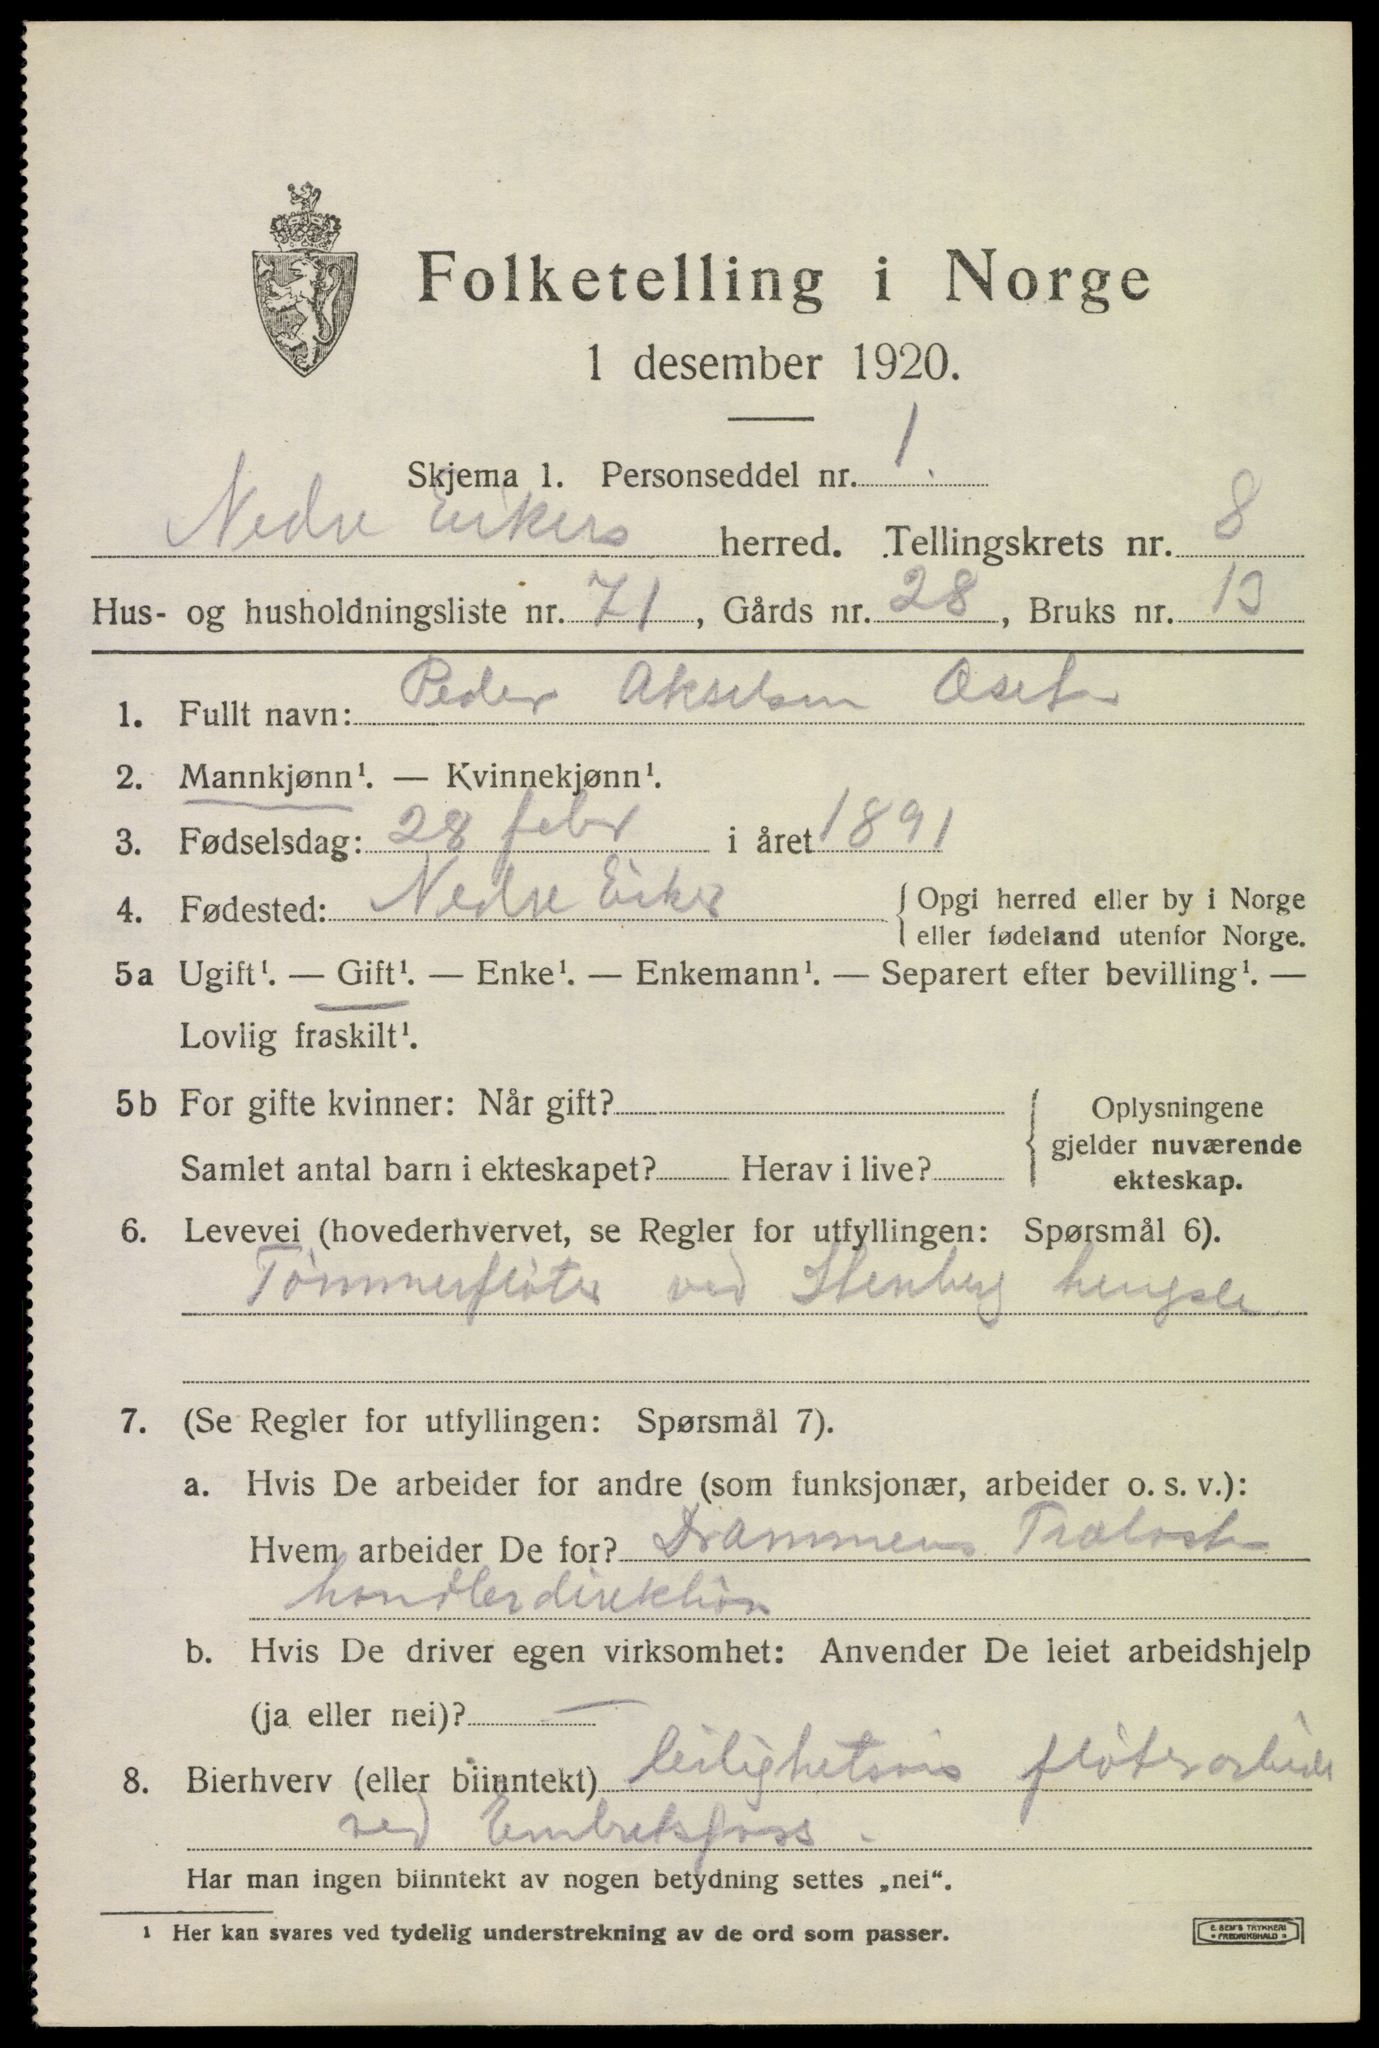 Folketelling i Norge
1 desember 1920.
Skjema 1. Personseddel nr. 1.
Nedre Eikers herred. Tellingskrets nr. 8
Hus- og husholdningsliste nr. 71, Gårds nr. 28, Bruks nr. 13
1. Fullt navn: Peder Akselsen Aset
2. Mannkjønn¹. — Kvinnekjønn¹.
3. Fødselsdag: 28 febr i året 1891
4. Fødested: Nedre Eiker { Opgi herred eller by i Norge
eller fødeland utenfor Norge.
5a Ugift¹. — Gift¹. — Enke¹. — Enkemann¹. — Separert efter bevilling¹. —
Lovlig fraskilt¹.
5b For gifte kvinner: Når gift? { Oplysningene
gjelder nuværende
Samlet antal barn i ekteskapet? Herav i live?
ekteskap.
6. Levevei (hovederhvervet, se Regler for utfyllingen: Spørsmål 6).
Tømmerfløter ved Stenberg hengsle
7. (Se Regler for utfyllingen: Spørsmål 7).
a. Hvis De arbeider for andre (som funksjonær, arbeider o. s. v.):
Hvem arbeider De for? Drammens Trælast
handlerdirektion
b. Hvis De driver egen virksomhet: Anvender De leiet arbeidshjelp
(ja eller nei)? —
8. Bierhverv (eller biinntekt) leilighetsvis fløterarbeide
ved Embretsfoss.
Har man ingen biinntekt av nogen betydning settes „nei“.
¹ Her kan svares ved tydelig understrekning av de ord som passer.
E. SEM'S TRYKKERI
* FREDRIKSHALD *